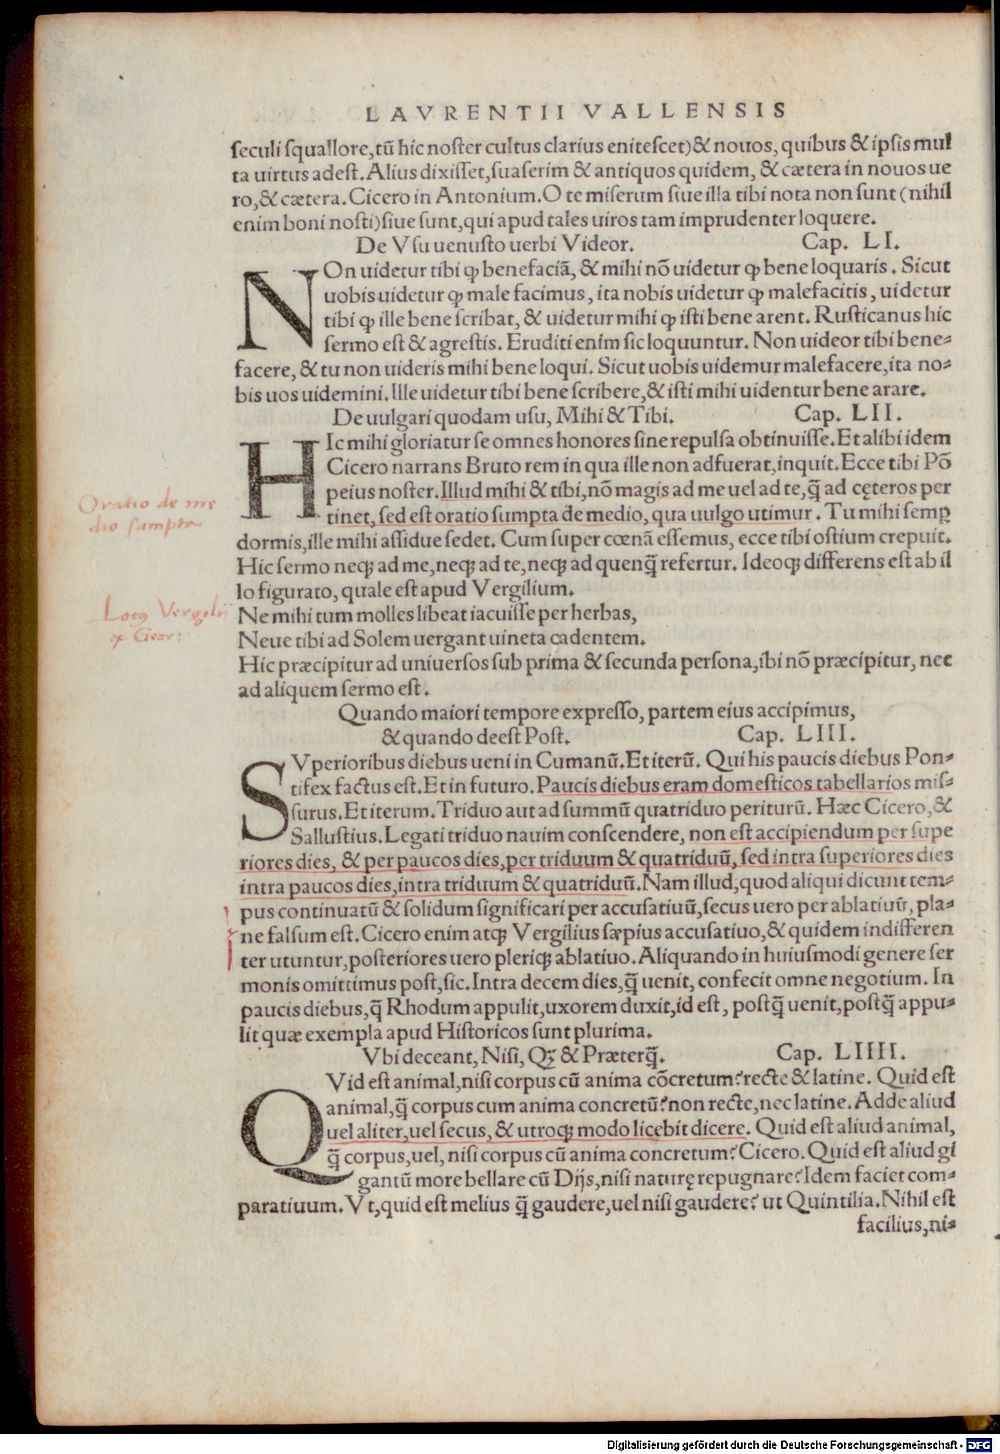 LAVRENTII VALLENSIS
seculi squallore,tũ hic noster cultus clarius enitescet)& nouos, quibus & ipsis mul
ta uirtus adest. Alius dixisset,suaserim & antiquos quidem, & cætera in nouos ue
ro,& cætera. Cicero in Antonium. O te miserum siue illa tibi nota non sunt (nihil
enim boni nosti)siue sunt,qui apud tales uiros tam imprudenter loquere.
De Vsu uenusto uerbi Videor. Cap. LI.
NOn uidetur tibi ꝙ benefaciã, & mihi nõ uidetur ꝙ bene loquaris. Sicut
uobis uidetur ꝙ male facimus, ita nobis uidetur ꝙ malefacitis, uidetur
tibi ꝙ ille bene scribat, & uidetur mihi ꝙ isti bene arent. Rusticanus hic
sermo est & agrestis. Eruditi enim sic loquuntur. Non uideor tibi bene⸗
facere, & tu non uideris mihi bene loqui. Sicut uobis uidemur malefacere,ita no⸗
bis uos uidemini. Ille uidetur tibi bene scribere,& isti mihi uidentur bene arare.
De uulgari quodam usu, Mihi & Tibi. Cap. LII.
HIc mihi gloriatur se omnes honores sine repulsa obtinuisse. Et alibi idem
Cicero narrans Bruto rem in qua ille non adfuerat,inquit. Ecce tibi Põ
peius noster. Illud mihi & tibi,nõ magis ad me uel ad te,q̃ ad cęteros per
Oratio de me
dio sumpta
tinet, sed est oratio sumpta de medio, qua uulgo utimur. Tu mihi semꝑ
dormis,ille mihi assidue sedet. Cum super cœnã essemus, ecce tibi ostium crepuit.
Hic sermo neqꝫ ad me,neqꝫ ad te,neqꝫ ad quenq̃ refertur. Ideoqꝫ differens est ab il
lo figurato, quale est apud Vergilium.
Locꝰ Vergilij
Geor:
Ne mihi tum molles libeat iacuisse per herbas,
Neue tibi ad Solem uergant uineta cadentem.
Hic præcipitur ad uniuersos sub prima & secunda persona,ibi nõ præcipitur, nec
ad aliquem sermo est.
Quando maiori tempore expresso, partem eius accipimus,
& quando deest Post. Cap. LIII.
SVperioribus diebus ueni in Cumanũ. Et iterũ. Qui his paucis diebus Pon⸗
tifex factus est. Et in futuro. Paucis diebus eram domesticos tabellarios mis⸗
surus. Et iterum. Triduo aut ad summũ quatriduo periturũ. Hæc Cicero,&
Sallustius. Legati triduo nauim conscendere, non est accipiendum per supe
riores dies, & per paucos dies,per triduum & quatriduũ, sed intra superiores dies
intra paucos dies,intra triduum & quatriduũ. Nam illud,quod aliqui dicunt tem⸗
pus continuatũ & solidum significari per accusatiuũ,secus uero per ablatiuũ, pla⸗
ne falsum est. Cicero enim atqꝫ Vergilius sæpius accusatiuo,& quidem indifferen
ter utuntur,posteriores uero pleriqꝫ ablatiuo. Aliquando in huiusmodi genere ser
monis omittimus post,sic. Intra decem dies,q̃ uenit, confecit omne negotium. In
paucis diebus,q̃ Rhodum appulit,uxorem duxit,id est, postq̃ uenit,postq̃ appu⸗
lit quæ exempla apud Historicos sunt plurima.
Vbi deceant, Nisi, Qꝫ & Præterq̃. Cap. LIIII.
QVid est animal,nisi corpus cũ anima cõcretum? recte & latine. Quid est
animal,q̃ corpus cum anima concretũ? non recte,nec latine. Adde aliud
uel aliter,uel secus, & utroqꝫ modo licebit dicere. Quid est aliud animal,
q̃ corpus,uel, nisi corpus cũ anima concretum? Cicero. Quid est aliud gi
gantũ more bellare cũ Dijs,nisi naturę repugnare? Idem faciet com⸗
paratiuum. Vt,quid est melius q̃ gaudere,uel nisi gaudere? ut Quintilia. Nihil est
facilius,ni⸗
Digitalisierung gefördert durch die Deutsche Forschungsgemeinschaft - DFG